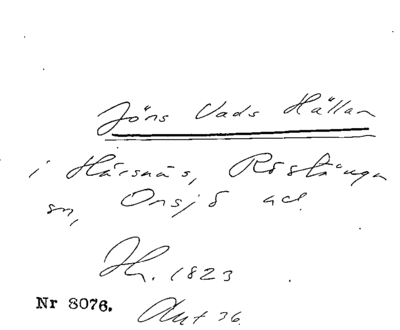 Jöns Vads Hällan
i Härsnäs, Röstånga
sn, Onsjö hd.
Jh. 1823
Nr 8076. Aut 36